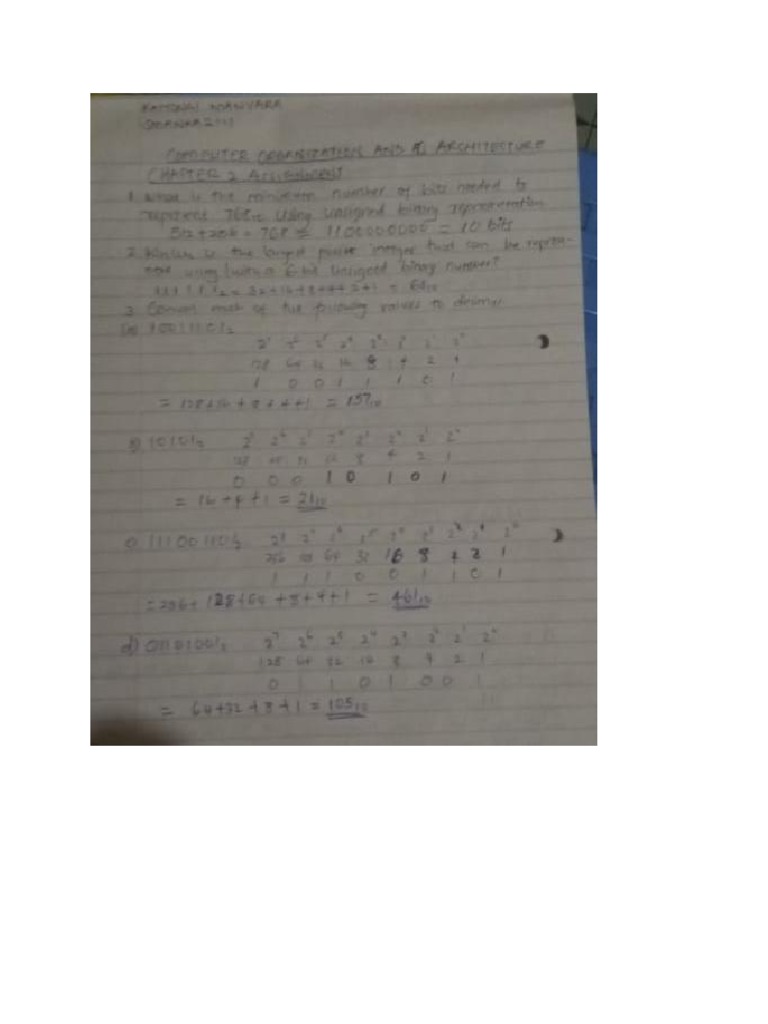 COMPUTER ORGANIZATION AND ARCHITECTURE
CHAPTER 2 Assignment
1. What is the minimum number of bits needed to
represent 768₁₀ using unsigned binary representation
512+256 = 768 = 1100000000 = 10 bits
2. is the largest positive integer that can be
using a 6-bit unsigned binary number?
= 32+16+8+4+2+1 =
3. Convert each of the following values to decimal
(a) 10011101₂
128 64 32 16 8 4 2 1
1 0 0 1 1 1 0 1
= 128+16+8+4+1 = 157₁₀
10101₂ 2⁷ 2⁶ 2⁵ 2⁴ 2³ 2² 2¹ 2⁰
16 8 4 2 1
0 0 0 1 0 1 0 1
= 16+4+1 = 21₁₀
111001101₂ 2⁸ 2⁷
256 128 64 32 16 8 4 2 1
1 1 1 0 0 1 1 0 1
= 256+128+64+8+4+1 = 461₁₀
d) 01101001₂ 2⁷ 2⁶ 2⁵ 2⁴ 2³ 2² 2¹ 2⁰
128 64 32 16 8 4 2 1
0 1 1 0 1 0 0 1
= 64+32+8+1 = 105₁₀